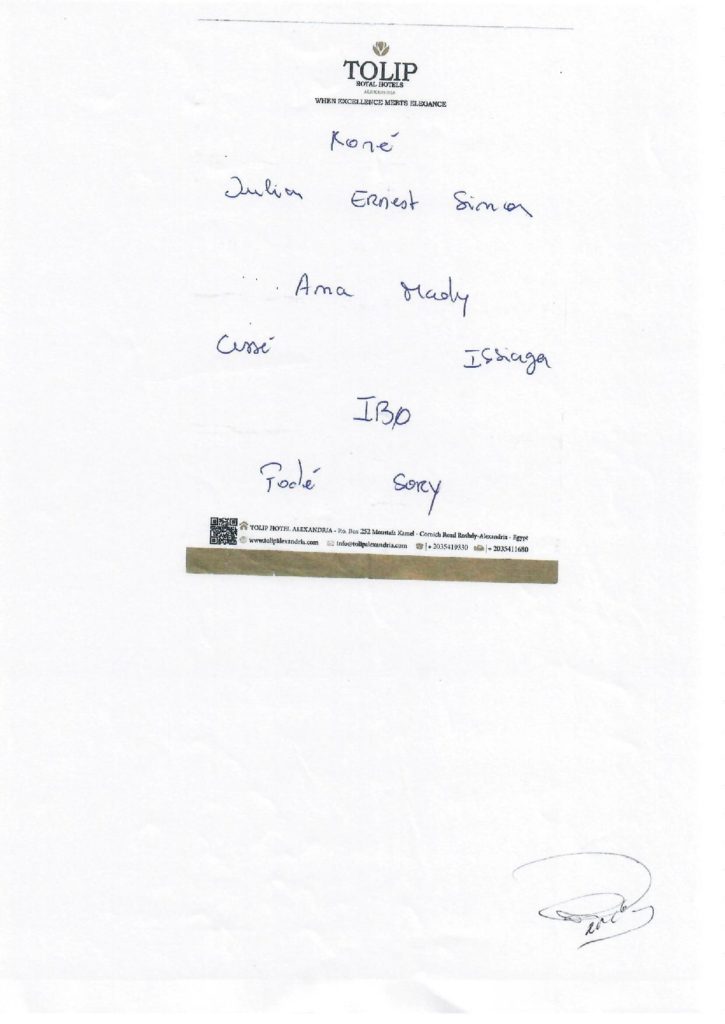 TOLIP
ROYAL HOTELS
ALEXANDRIA
WHEN EXCELLENCE MEETS ELEGANCE
Koné
Julian Ernest Simon
Ama Mady
Cissé Issiaga
IBO
Fodé Sory
TOLIP HOTEL ALEXANDRIA - P.o. Box 252 Moustafa Kamel - Cornich Road Roshdy-Alexandria - Egypt
www.tolipalexandria.com info@tolipalexandria.com + 2035419330 + 2035411680